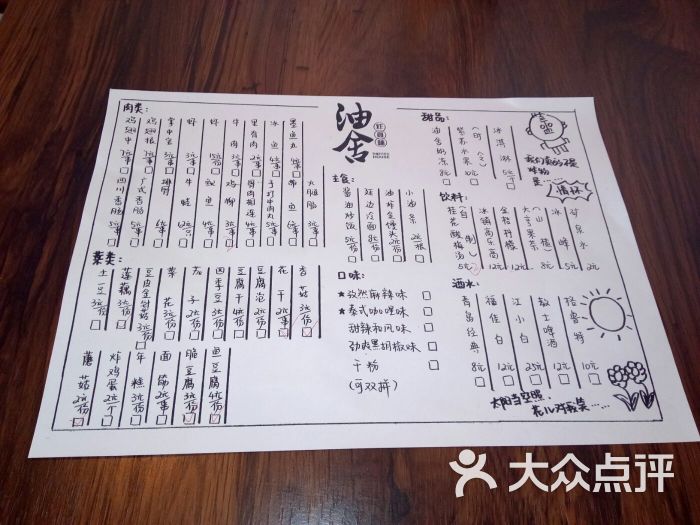 肉类:
鸡翅中 7元/串
鸡翅根 7元/串
掌中宝 3元/串
虾 15元/份
牛肉 3元/串
里脊肉 2元/串
鱼丸
墨鱼丸 4元/串
四川香肠 5元/串
广式香肠 5元/串
排骨
牛蛙
鱿鱼
鸡柳 3元/串
骨肉相连 4元/串
手打牛肉丸
带鱼 6元
大腿肠 3元/串
菜类:
土豆 3元/份
莲藕 3元/份
豆皮金针菇 3元/份
茅花
茄子 2元/份
四季豆 3元/份
豆腐干 4元/份
豆腐泡 2元/份
花干 2元/串
香菇 3元/份
蘑菇 2元/份
炸鸡蛋 2元/个
年糕 3元/份
面筋 2元/串
脆豆腐 3元/份
鱼豆腐 4元/份
油舍
好商铺
YOUSE HOUSE
主食:
酱油炒饭
延边冷面 8元/份
油炸金馒头 2元/份
小油条 2元/根
口味:
★孜然麻辣味
★泰式咖喱味
甜辣和风味
劲爽黑胡椒味
干粉
(可双拼)
甜品:
油舍奶冻 8元
紫苏水果 10元
冰淇淋 5元
我们卖的不是
唯物
是……
情怀
饮料:
桂花酸梅汤(自制) 5元
冰镇高乐高 12元
金桔柠檬 12元
大亨果茶(山楂) 8元
冰峰 5元
矿泉水 2元
酒水:
青岛经典 8元
福佳白 12元
江小白 25元
教士啤酒 12元
格鲁特 10元
太阳当空照,
花儿对我笑……
大众点评